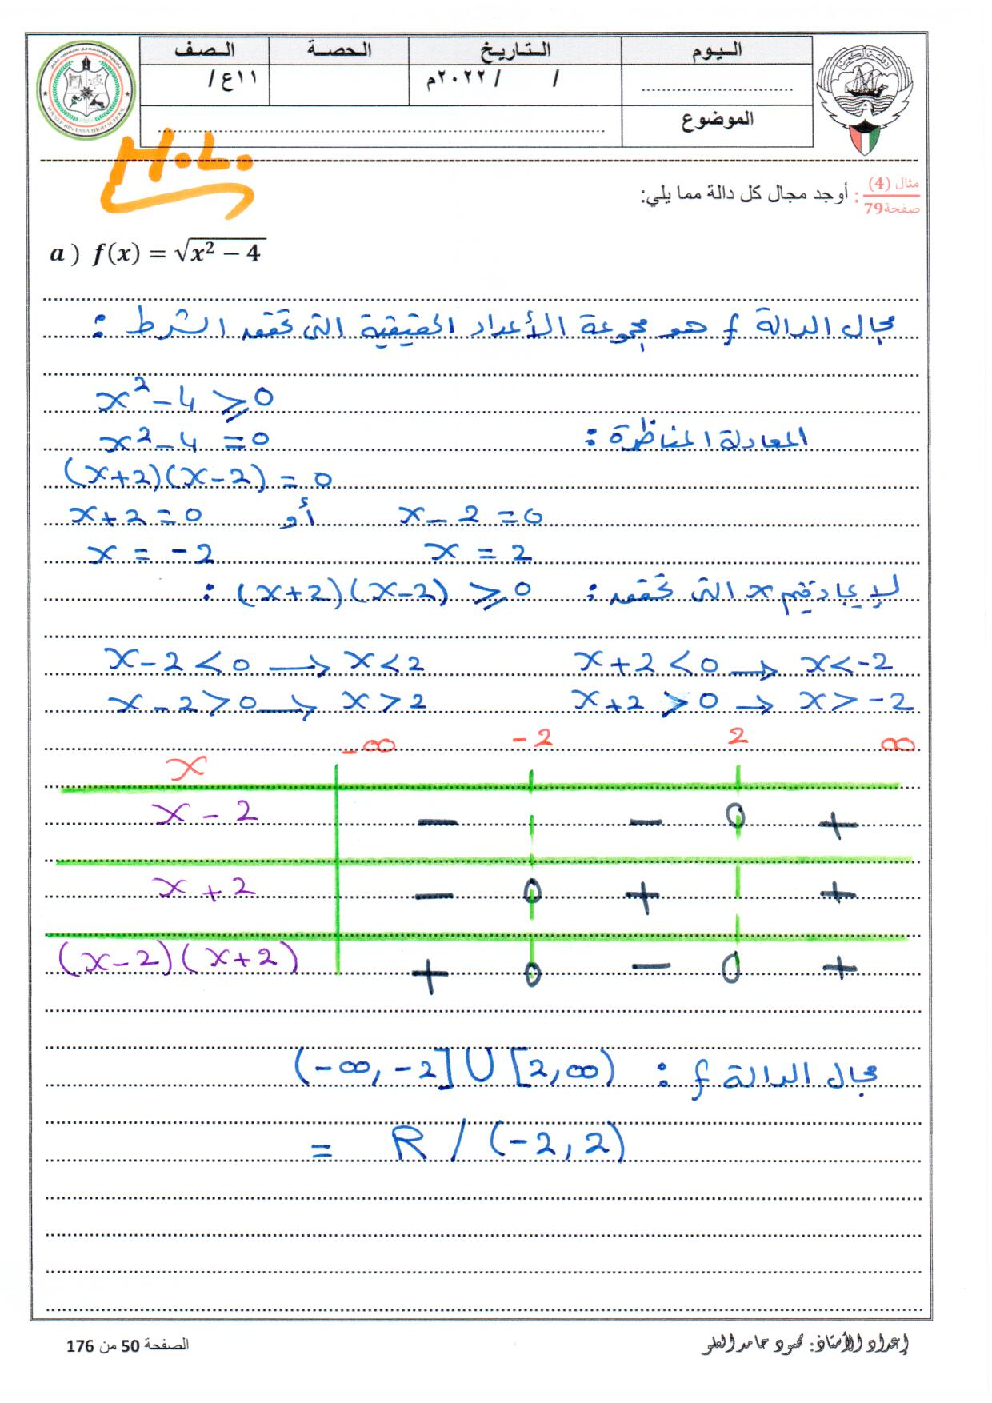 اليوم التاريخ الحصة الصف
/ / ٢٠٢٢م ١١ع /
الموضوع
H.L.
مثال (4) صفحة79 : أوجد مجال كل دالة مما يلي:
a ) f(x) = √(x² − 4)
مجال الدالة f هو مجموعة الأعداد الحقيقية التي تحقق الشرط :
x² − 4 ⩾ 0
المعادلة المناظرة : x² − 4 = 0
(x+2)(x−2) = 0
x + 2 = 0 أو x − 2 = 0
x = −2 x = 2
لإيجاد قيم x التي تحقق : (x+2)(x−2) ⩾ 0 :
x − 2 < 0 → x < 2 x + 2 < 0 → x < −2
x − 2 > 0 → x > 2 x + 2 > 0 → x > −2
x −∞ −2 2 ∞
x − 2 − − 0 +
x + 2 − 0 + +
(x−2)(x+2) + 0 − 0 +
مجال الدالة f : (−∞, −2] U [2, ∞)
= R / (−2, 2)
إعداد الأستاذ: محمود حامد العلو
الصفحة 50 من 176